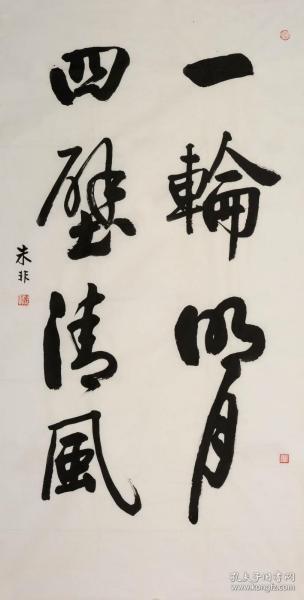 一輪明月
四壁清風
朱非
孔夫子旧书网